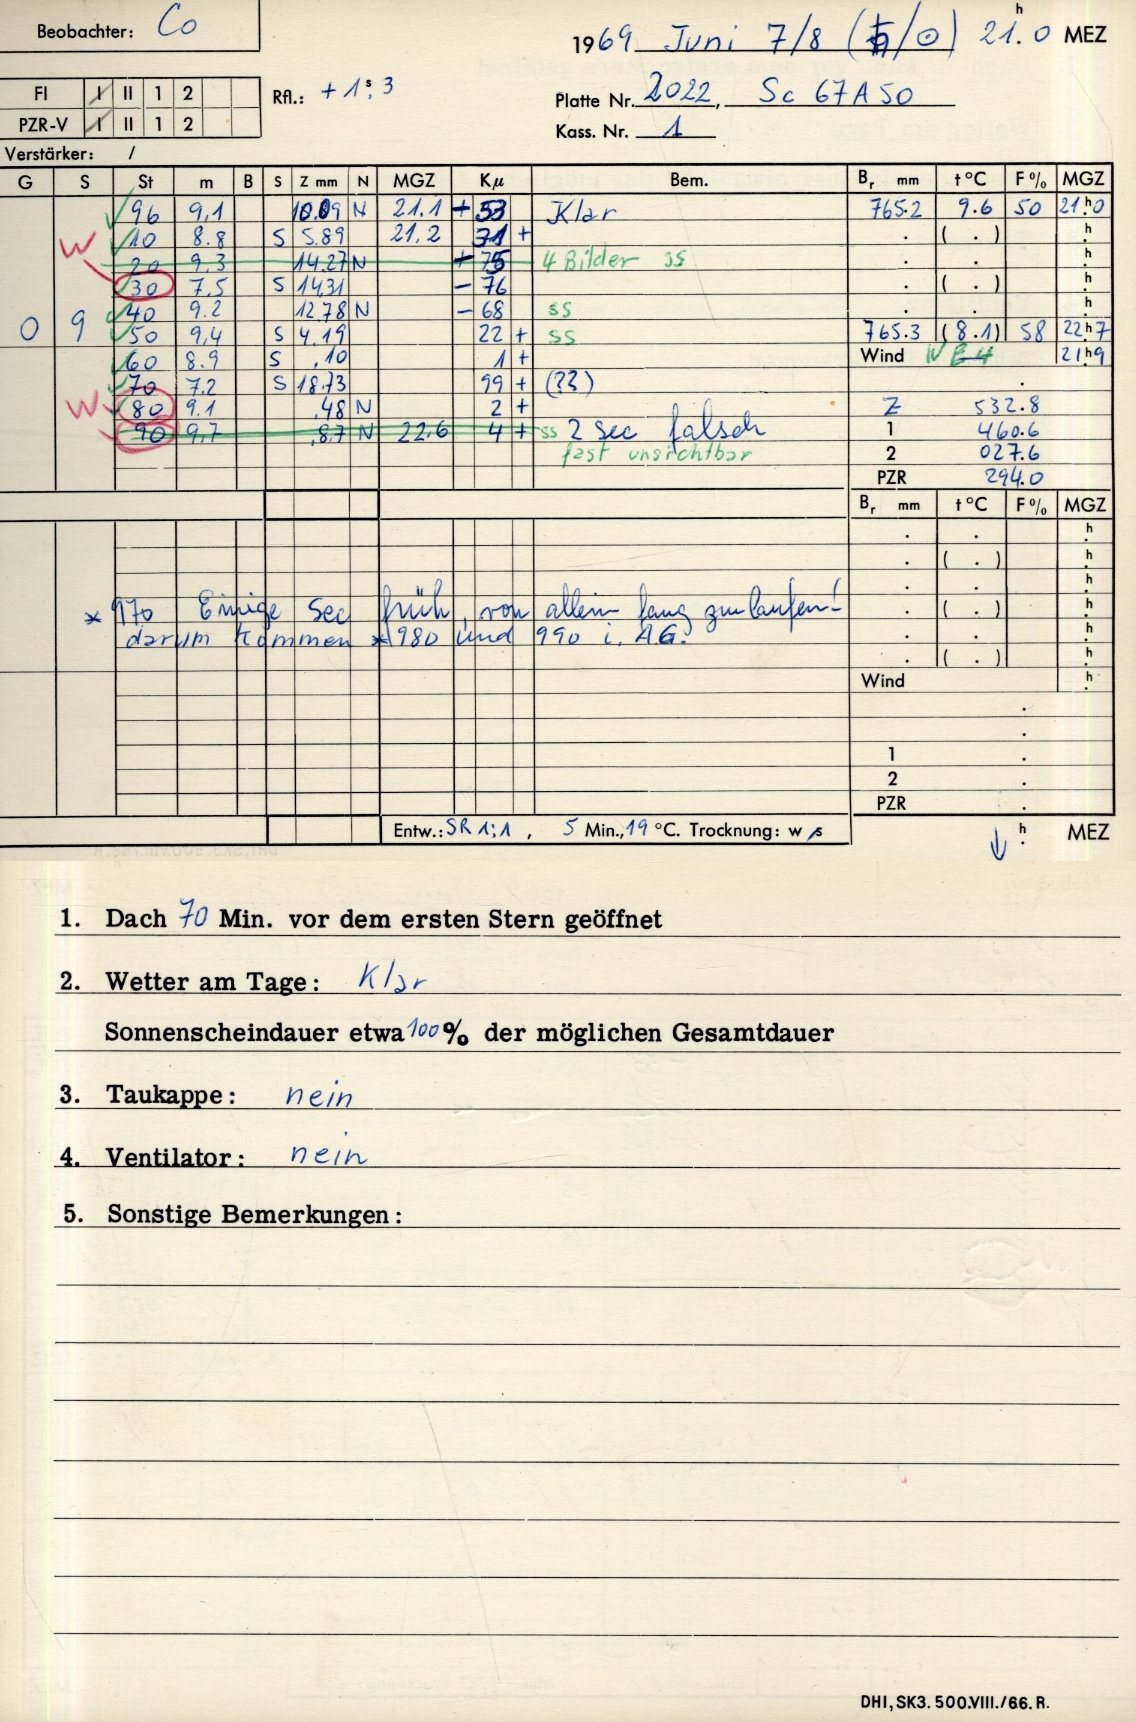 Beobachter: Co
1969 Juni 7/8 (♄/☉) 21.ʰ0 MEZ
FI I II 1 2
PZR-V I II 1 2
Rfl.: +1ˢ.3
Platte Nr. 2022, Sc 67A50
Kass. Nr. 1
Verstärker: /
G S St m B S Z mm N MGZ Kμ Bem. Bᵣ mm t°C F% MGZ
96 9,1 10.09 N 21.1 + 53 Klar 765.2 9.6 50 21ʰ.0
W 10 8.8 S 5.89 21.2 71 + . ( . ) ʰ.
20 9.3 14.27 N + 75 4 Bilder ss . . ʰ.
30 7.5 S 14,31 - 76 . ( . ) ʰ.
40 9.2 12.78 N - 68 ss . . ʰ.
0 9 50 9,4 S 4.19 22 + ss 765.3 (8.1) 58 22ʰ.7
60 8.9 S .10 1 + Wind W E 4 21ʰ.9
70 7.2 S 18.73 99 + (??) .
W 80 9.1 .48 N 2 + Z 532.8
90 9,7 .87 N 22.6 4 + ss 2 sec falsch 1 460.6
fast unsichtbar 2 027.6
PZR 294.0
Bᵣ mm t°C F% MGZ
. . ʰ.
. ( . ) ʰ.
. . ʰ.
* 970 Einige Sec früh, von allein fang zu laufen! . ( . ) ʰ.
darum kommen *980 und 990 i. A.G. . . ʰ.
. ( . ) ʰ.
Wind ʰ.
.
.
1 .
2 .
PZR .
Entw.: SR 1:1, 5 Min., 19 °C. Trocknung: w /s
↓ ʰ. MEZ
1. Dach 70 Min. vor dem ersten Stern geöffnet
2. Wetter am Tage: Klar
Sonnenscheindauer etwa 100% der möglichen Gesamtdauer
3. Taukappe: nein
4. Ventilator: nein
5. Sonstige Bemerkungen:
DHI, SK3. 500.VIII./66. R.